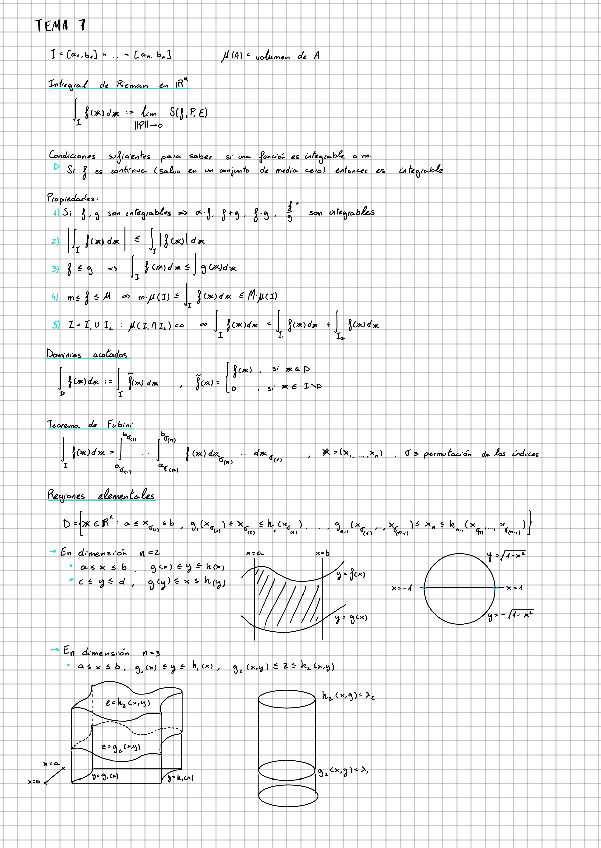 TEMA 7
I = [a₁, b₁] × ... × [aₙ, bₙ]    μ(A) = volumen de A
Integral de Rieman en ℝⁿ
∫_I f(x) dx := lim_{||P||→0} S(f, P, E)
Condiciones suficientes para saber si una función es integrable o no
▷ Si f es continua (salvo en un conjunto de medida cero) entonces es integrable
Propiedades:
1) Si f, g son integrables ⇒ α·f, f+g, f·g, f/g* son integrables
2) |∫_I f(x) dx| ≤ ∫_I |f(x)| dx
3) f ≤ g ⇒ ∫_I f(x) dx ≤ ∫ g(x) dx
4) m ≤ f ≤ M ⇒ m·μ(I) ≤ ∫_I f(x) dx ≤ M·μ(I)
5) I = I₁ ∪ I₂ : μ(I₁ ∩ I₂) = 0 ⇒ ∫_I f(x) dx = ∫_{I₁} f(x) dx + ∫_{I₂} f(x) dx
Dominios acotados
∫_D f(x) dx := ∫_I f̃(x) dx , f̃(x) = { f(x) , si x ∈ D
0 , si x ∈ I\D
Teorema de Fubini
∫_I f(x) dx = ∫_{a_σ(1)}^{b_σ(1)} ... ∫_{a_σ(n)}^{b_σ(n)} f(x) dx_σ(n) ... dx_σ(1) , x = (x₁, ..., xₙ) , σ ≡ permutación de los índices
Regiones elementales
D = {x ∈ ℝⁿ : a ≤ x_σ(1) ≤ b , g₁(x_σ(1)) ≤ x_σ(2) ≤ h₁(x_σ(1)) , ... , gₙ₋₁(x_σ(1), ..., x_σ(n-1)) ≤ xₙ ≤ hₙ₋₁(x_σ(1), ..., x_σ(n-1))}
→ En dimensión n=2
• a ≤ x ≤ b , g(x) ≤ y ≤ h(x)
• c ≤ y ≤ d , g(y) ≤ x ≤ h(y)
x=a
x=b
y = f(x)
y = g(x)
y = √(1-x²)
x=-1
x=1
y = -√(1-x²)
→ En dimensión n=3
• a ≤ x ≤ b , g₁(x) ≤ y ≤ h₁(x) , g₂(x,y) ≤ z ≤ h₂(x,y)
z = h₂(x,y)
z = g₂(x,y)
x=a
y = g₁(x)
y = h₁(x)
h₂(x,y) = λ₂
g₂(x,y) = λ₁